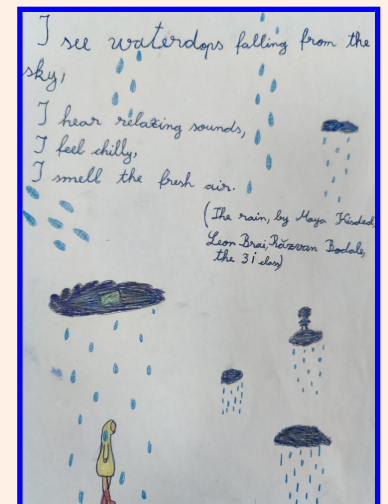 I see waterdops falling from the
sky,
I hear relaxing sounds,
I feel chilly,
I smell the fresh air.
(The rain, by Maya
Leon Brai, Răzvan Bodale,
the 3 i class)